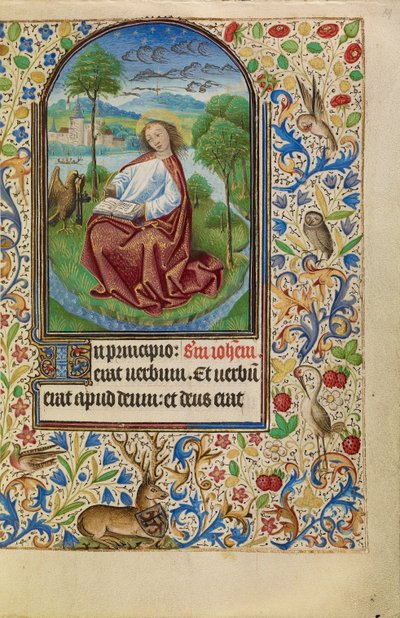 In principio: Sm ioh̄em.
erat uerbum. Et uerbū
erat apud deum: et deus erat